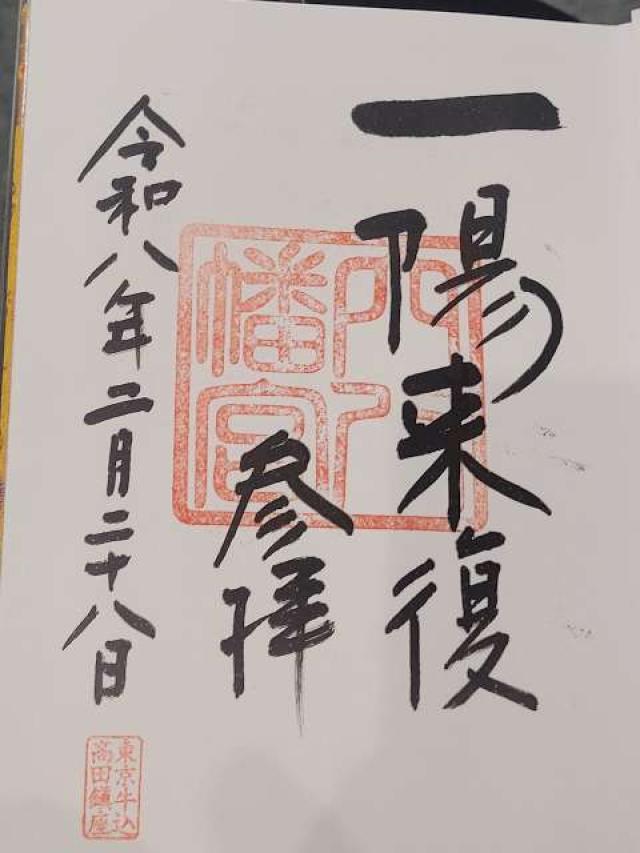 一陽来復
参拝
令和八年二月二十八日
穴八
幡宮
東京牛込
高田鎭座